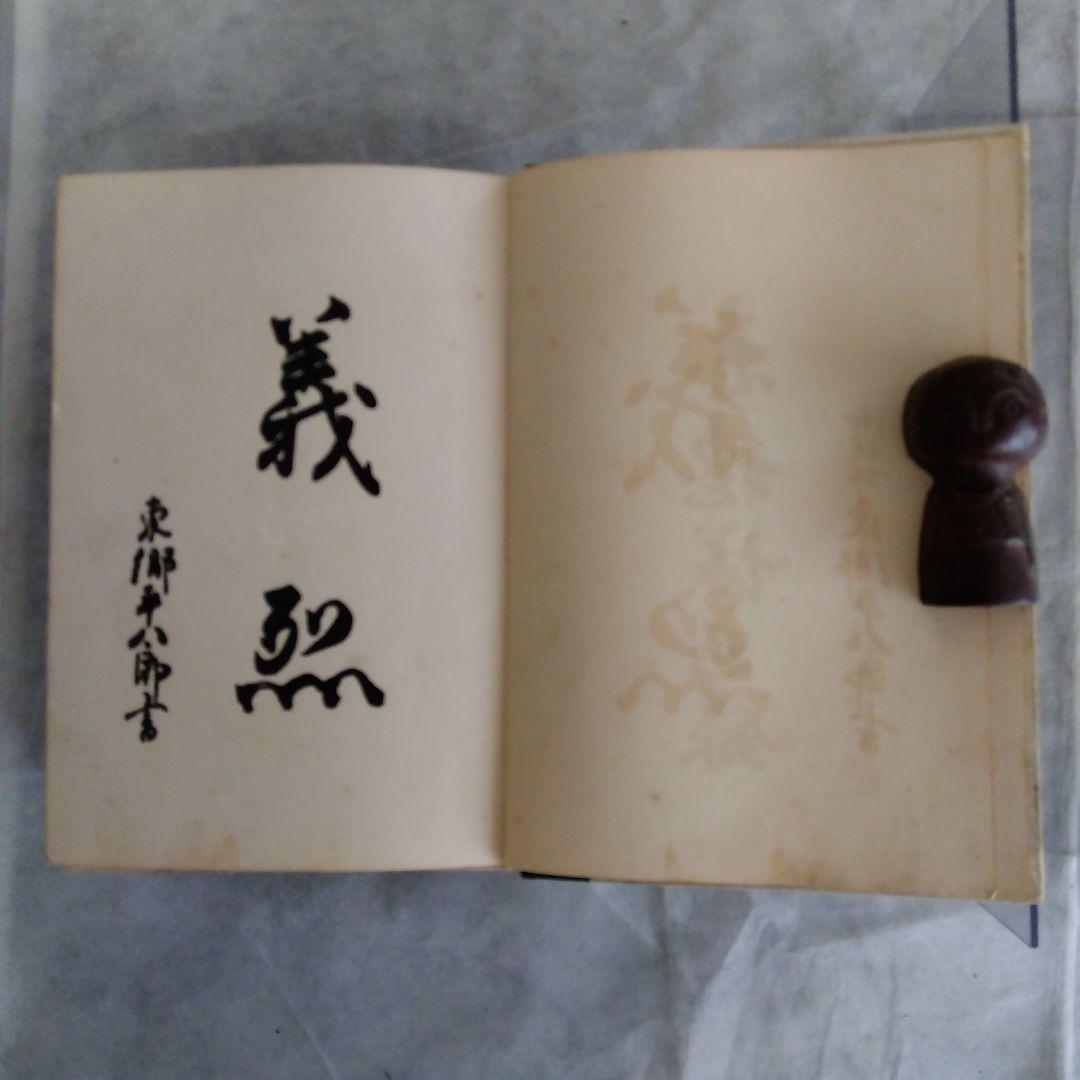 義烈
東郷平八郎書